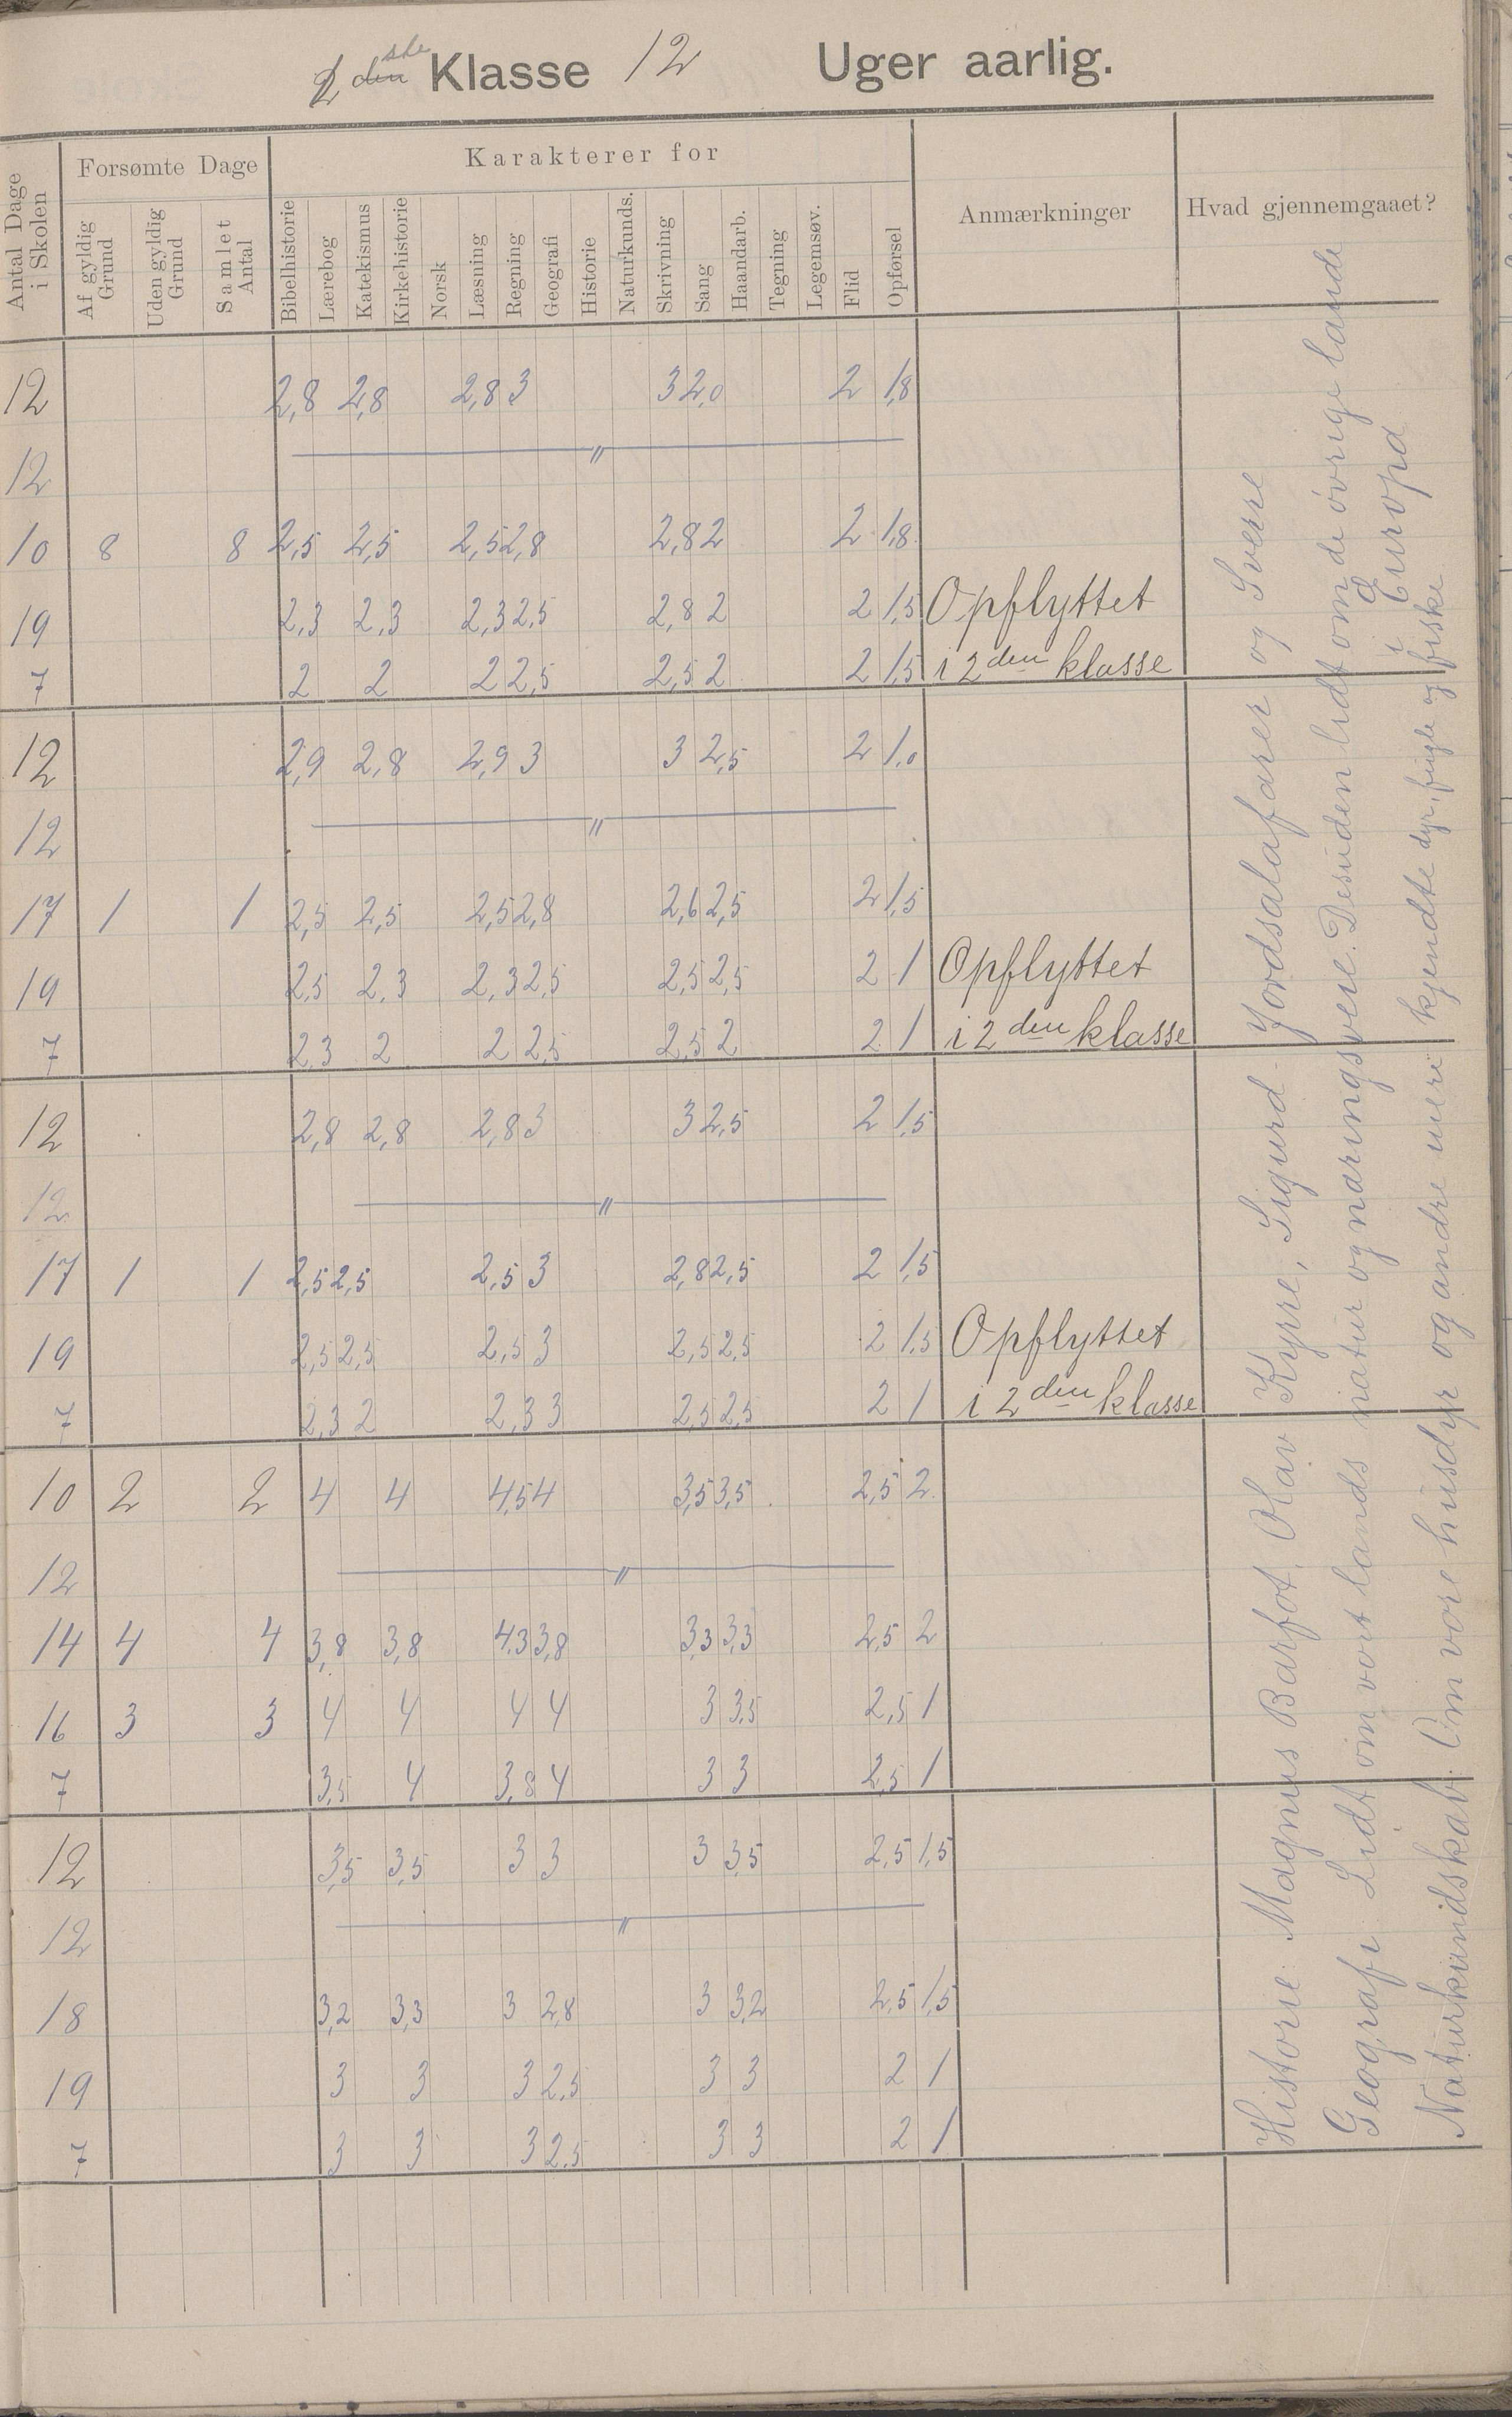 1 den ste Klasse 12 Uger aarlig.
Antal Dage i Skolen
Forsømte Dage
Af gyldig Grund
Uden gyldig Grund
Samlet Antal
Karakterer for
Bibelhistorie
Lærebog
Katekismus
Kirkehistorie
Norsk
Læsning
Regning
Geografi
Historie
Naturkunds.
Skrivning
Sang
Haandarb.
Tegning
Legemsøv.
Flid
Opførsel
Anmærkninger
Hvad gjennemgaaet?
12 2,8 2,8 2,8 3 3 2,0 2 1,8
12 "
10 8 8 2,5 2,5 2,5 2,8 2,8 2 2 1,8
19 2,3 2,3 2,3 2,5 2,8 2 2 1,5 Opflyttet
7 2 2 2 2,5 2,5 2 2 1,5 i 2den klasse
12 2,9 2,8 2,9 3 3 2,5 2 1,0
12 "
17 1 1 2,5 2,5 2,5 2,8 2,6 2,5 2 1,5
19 2,5 2,3 2,3 2,5 2,5 2,5 2 1 Opflyttet
7 2,3 2 2 2,5 2,5 2 2 1 i 2den klasse
12 2,8 2,8 2,8 3 3 2,5 2 1,5
12 "
17 1 1 2,5 2,5 2,5 3 2,8 2,5 2 1,5
19 2,5 2,5 2,5 3 2,5 2,5 2 1,5 Opflyttet
7 2,3 2 2,3 3 2,5 2,5 2 1 i 2den klasse
10 2 2 4 4 4,5 4 3,5 3,5 2,5 2
12 "
14 4 4 3,8 3,8 4,3 3,8 3,3 3,3 2,5 2
16 3 3 4 4 4 4 3 3,5 2,5 1
7 3,5 4 3,8 4 3 3 2,5 1
12 3,5 3,5 3 3 3 3,5 2,5 1,5
12 "
18 3,2 3,3 3 2,8 3 3,2 2,5 1,5
19 3 3 3 2,5 3 3 2 1
7 3 3 3 2,5 3 3 2 1
Historie: Magnus Barfot, Olav Kyrre, Sigurd Jordsalafarer og Sverre
Geografi: Lidt om vort lands natur og næringsveie. Desuden lidt om de øvrige lande
i Europa
Naturkundskab: Om vore husdyr og andre mere kjendte dyr, fugle og fiske